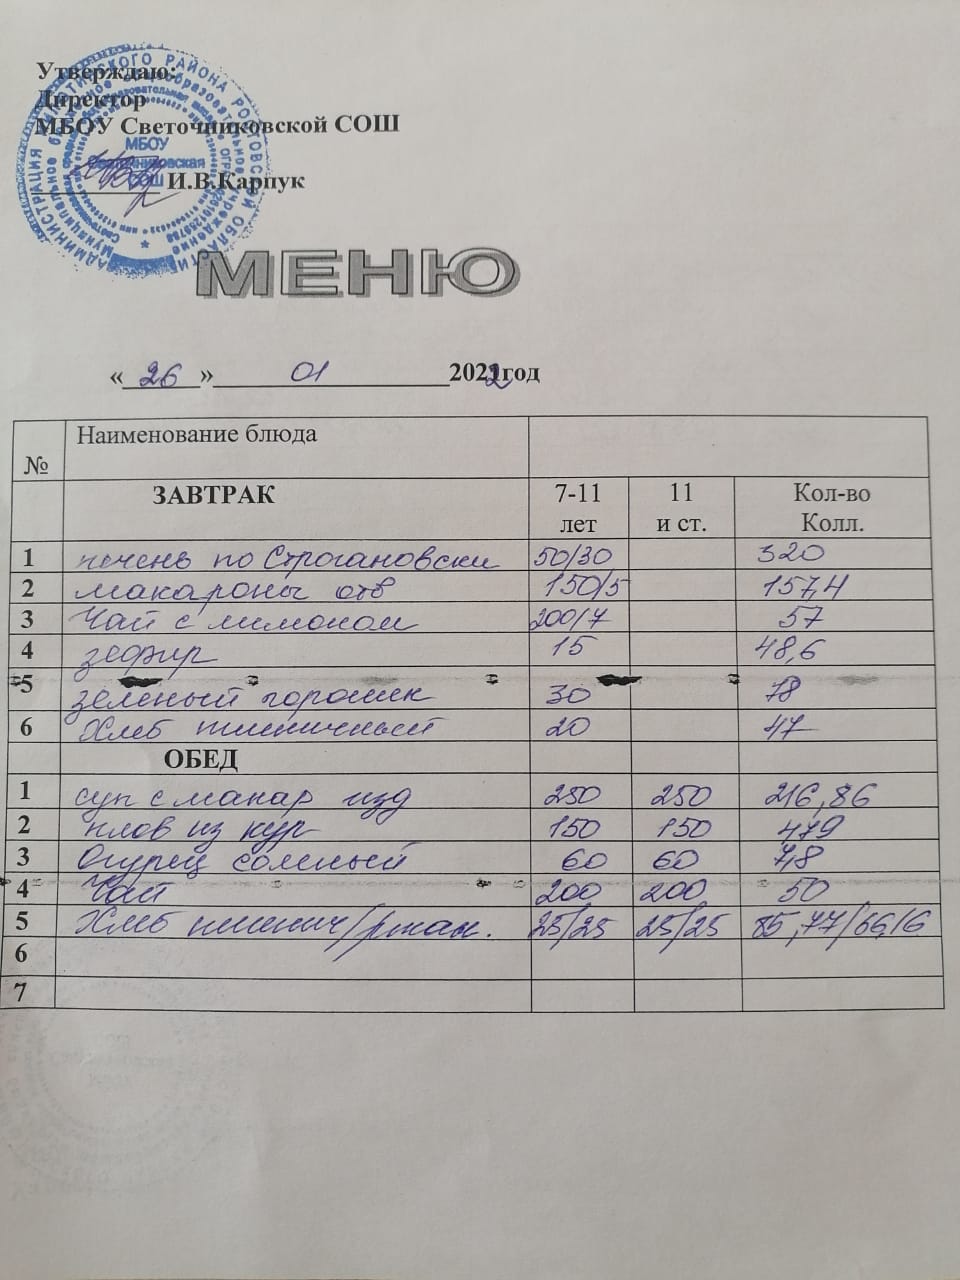 Утверждаю:
Директор
МБОУ Светочниковской СОШ
И.В.Карпук
МБОУ
СОШ
МЕНЮ
« 26 » 01 2022 год
№ Наименование блюда
ЗАВТРАК 7-11 лет 11 и ст. Кол-во Колл.
1 печень по Строгановски 50/30 320
2 макароны отв 150/5 157,4
3 Чай с лимоном 200/7 57
4 зефир 15 48,6
5 зеленый горошек 30 78
6 Хлеб пшеничный 20 47
ОБЕД
1 суп с макар изд 250 250 216,86
2 плов из кур 150 150 479
3 Огурец соленый 60 60 7,8
4 Чай 200 200 50
5 Хлеб пшенич/ржан. 25/25 25/25 85,77/66,16
6
7